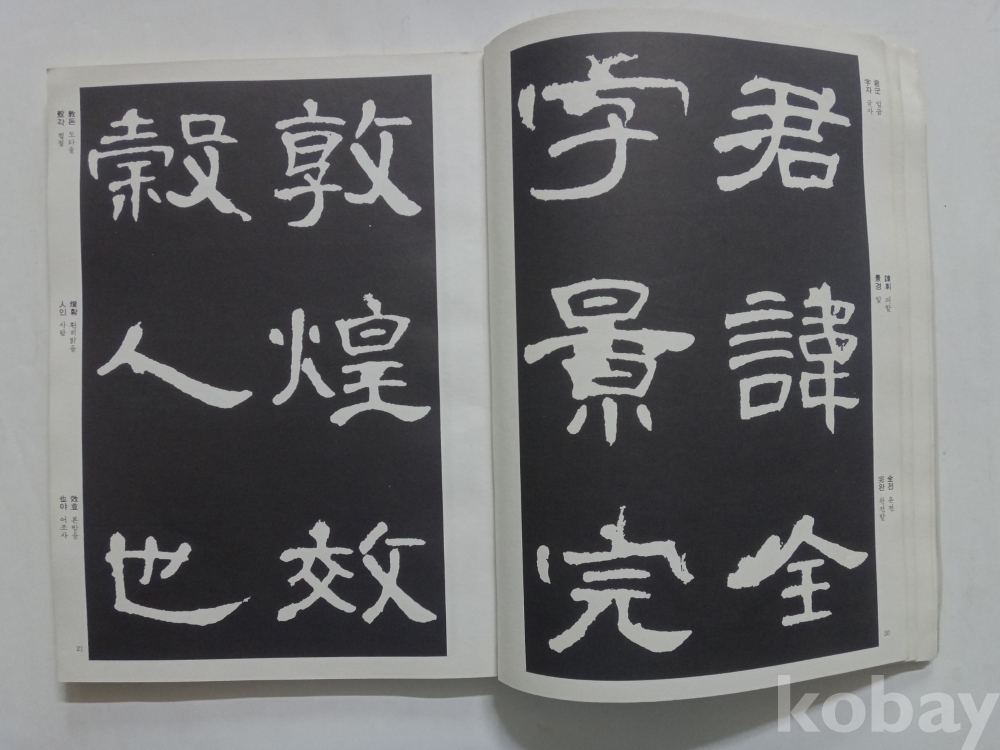 君諱全
字景完
君군 임금
字자 글자
諱휘
景경
全전 온전
完완 완전할
20
敦煌效
穀人也
敦돈 도타울
煌황 환히밝을
人인 사람
效효 본받을
也야 어조사
21
kobay